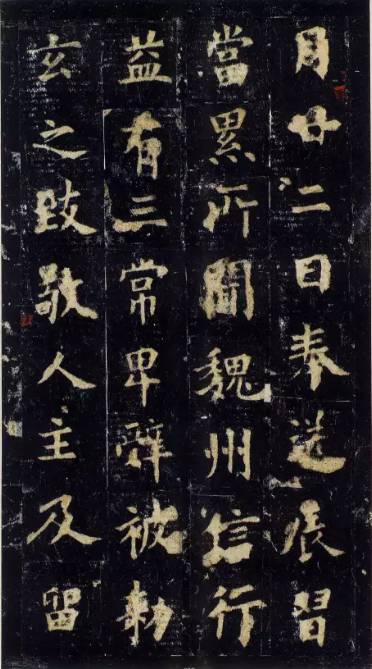 月廿二日奉送習
當累所聞魏州信行
益有三常卑辭被勅
玄之致敬人主及留